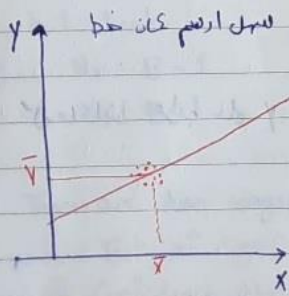 سهل ارسم كان خط
Y
Y̅
X̅
X